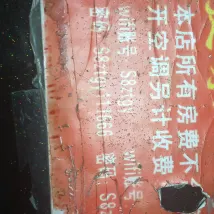 本店所有房费不
开空调另计收费
wifi账号 wifi账号
密码 密码